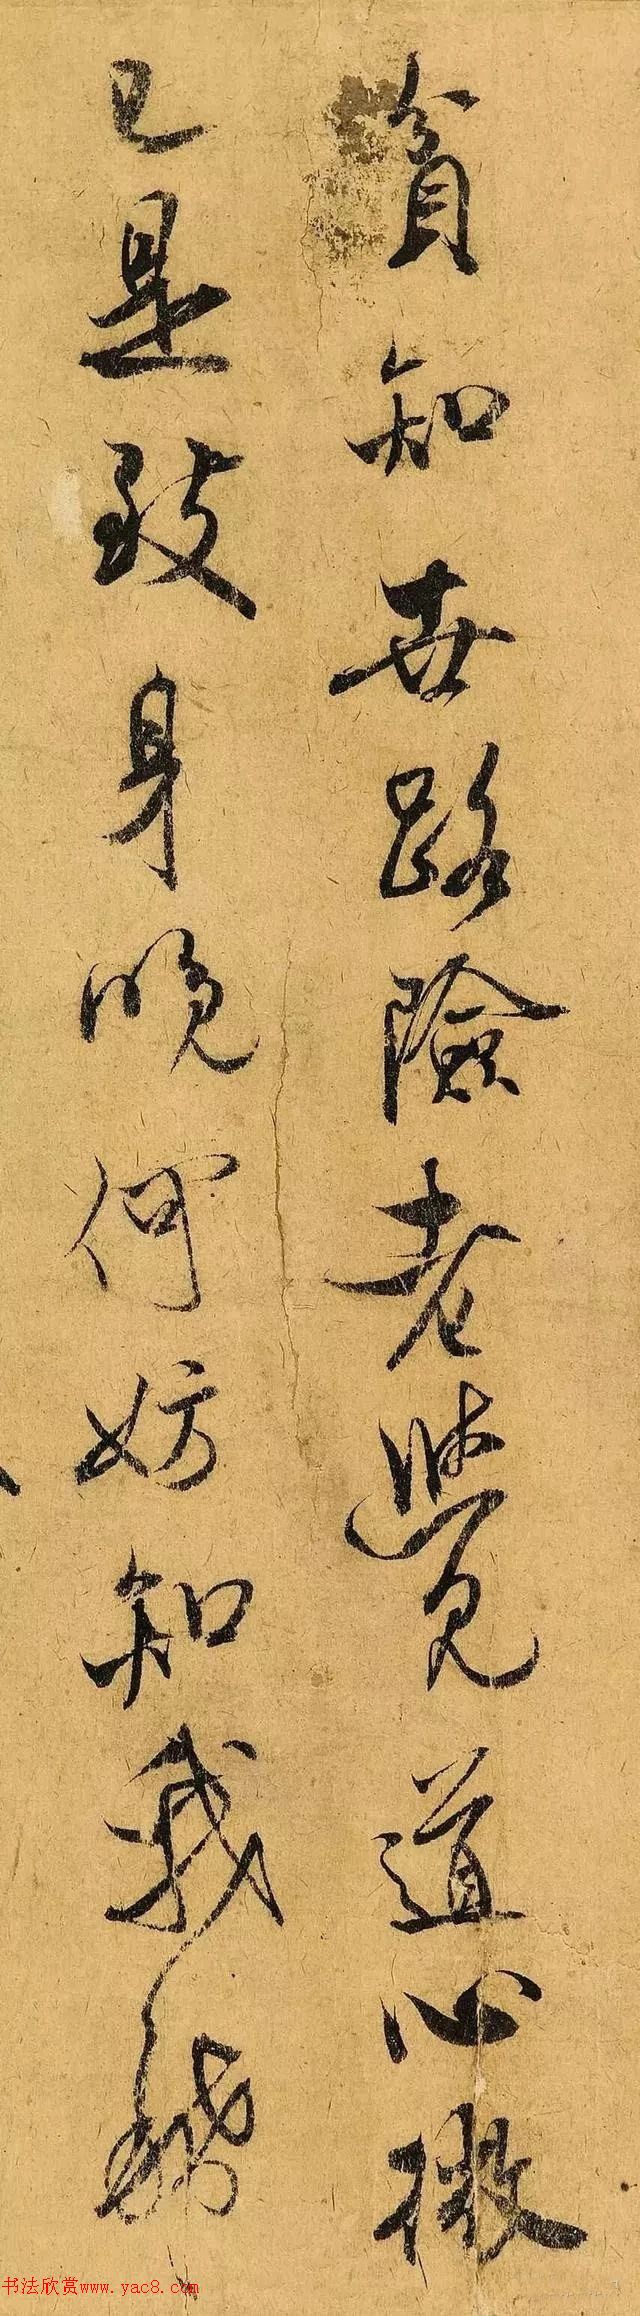 貧知世路險老覺道心微
已是致身晚何妨知我稀
书法欣赏www.yac8.com